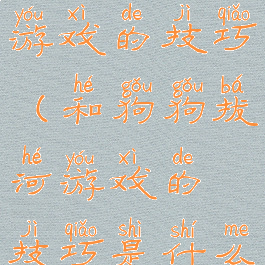 yóu xì de jì qiǎo
游戏的技巧
hé gǒu gǒu bá
(和狗狗拔
hé yóu xì de
河游戏的
jì qiǎo shì shí me
技巧是什么